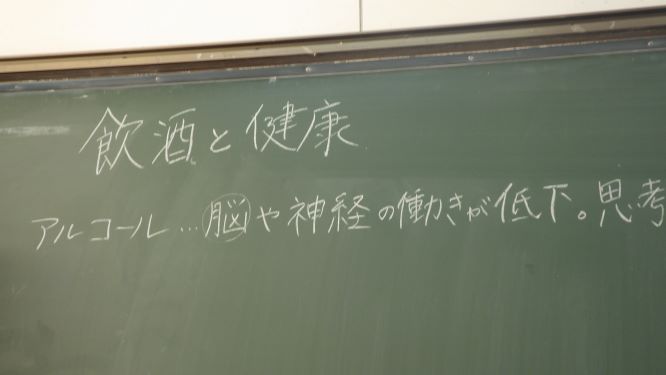 飲酒と健康
アルコール…脳や神経の働きが低下。思考